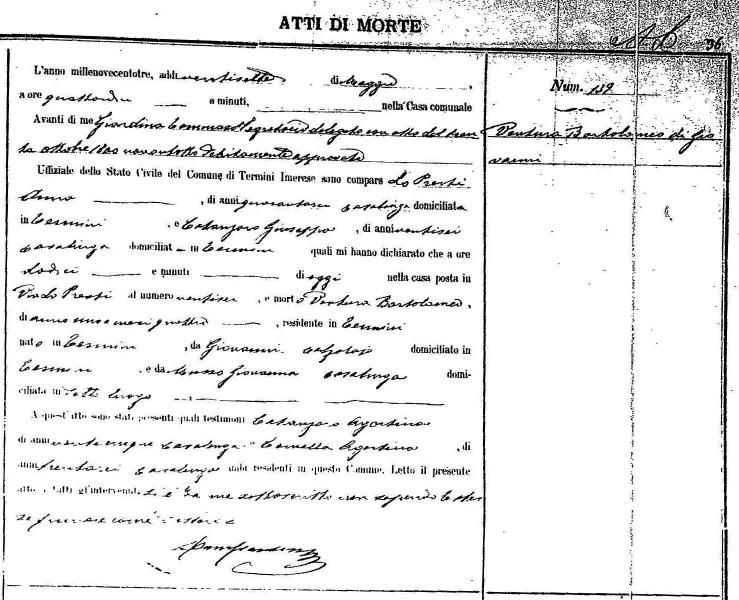 ATTI DI MORTE
36
L'anno millenovecentotre, addì ventisette di Maggio,
a ore quattordici e minuti, nella Casa comunale
Avanti di me Giardina Tommaso Segretario delegato con atto del
ottobre 1800 novantotto debitamente approvato
Uffiziale dello Stato Civile del Comune di Termini Imerese sono comparse Lo Presti
Anna, di anni quarantasei casalinga domiciliata
in Termini, e Catanzaro Giuseppa, di anni ventisei
casalinga domiciliat in Termini quali mi hanno dichiarato che a ore
dodici e minuti di oggi nella casa posta in
Via Lo Presti al numero ventisei, è morto Ventura Bartolomeo,
di anno uno e mesi quattro, residente in Termini
nato in Termini, da Giovanni domiciliato in
Termini e da Giovanna casalinga domi-
ciliata in detto luogo
A quest'atto sono stati presenti quali testimoni Catanzaro Agostina
di anni venticinque casalinga Agostina, di
anni trentasei casalinga residenti in questo Comune. Letto il presente
atto a tutti gl'intervenuti si è da me sottoscritto non sapendo le
Num. 139
Ventura Bartolomeo di Gio
vanni